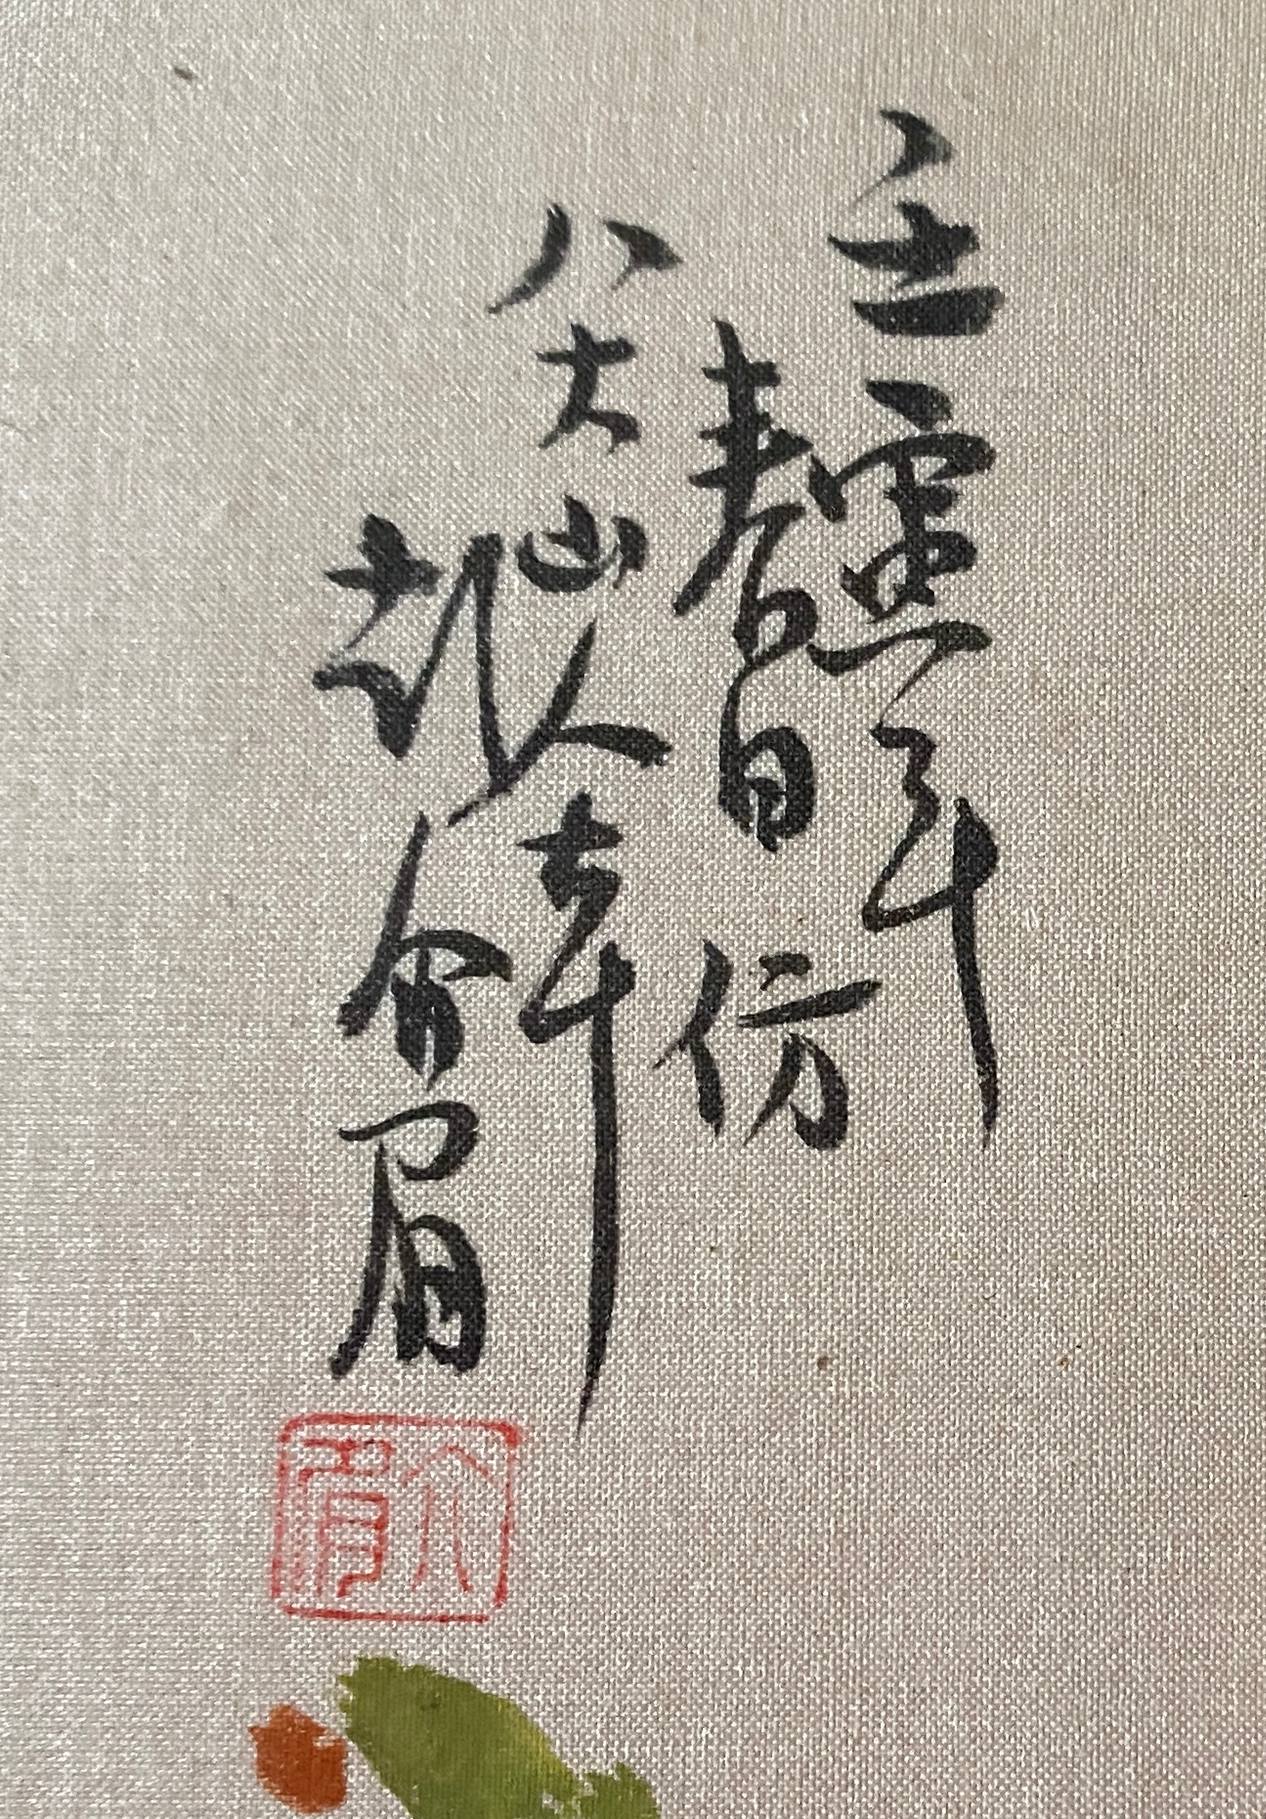 壬寅年
春日仿
八大山人筆
介眉
介眉